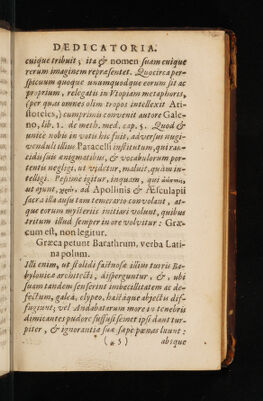 DEDICATORIA.
cuique tribuit; ita & nomen suam cuique
rerum imaginem repræsentet. Quocirca per-
spicuum quoque unamquodque eorum sit ac
proprium, relegatis in Vtopiam metaphoris,
(per quas omnes olim tropos intellexit Ari-
stoteles,) cumprimis convenit autore Gale-
no, lib. 1. de meth. med. cap. 5. Quod &
unice nobis in votis hic fuit, adversus nugi-
venduli illius Paracelsi institutum, qui ran-
cidis suis ænigmatibus, & vocabulorum por-
tentis negligi, ut videtur, maluit, quàm in-
telligi. Pessime igitur, inquam, qui
ut ajunt, ad Apollinis & Æsculapii
sacra illa ausu tam temerario convolant, at-
que eorum mysteriis initiari volunt, quibus
tritum illud semper in ore volvitur: Græ-
cum est, non legitur.
Græca petunt Barathrum, verba Lati-
na polum.
Illi enim, ut stolidi fastuosæ illius turris Ba-
bylonicæ architecti, disperguntur, &, ubi
suam tandem senserint imbecillitatem ac de-
fectum, galea, clypeo, hastáque abjectis dif-
fugiunt; vel Andabatarum in tenebris
dimicantes pudore suffusi semet ipsi dant tur-
piter, & ignorantiæ suæ sæpe pœnas luunt:
(* 5) absque